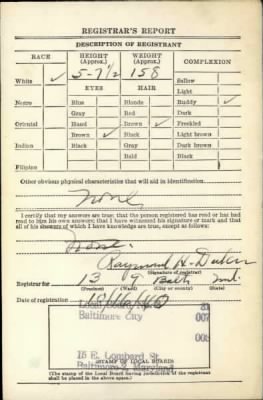 REGISTRAR'S REPORT
DESCRIPTION OF REGISTRANT
RACE HEIGHT (Approx.) WEIGHT (Approx.) COMPLEXION
5-7½ 158
White ✓ Sallow
EYES HAIR Light
Negro Blue Blonde Ruddy ✓
Gray Red Dark
Oriental Hazel Brown ✓ Freckled
Brown ✓ Black Light brown
Indian Black Gray Dark brown
Bald Black
Filipino
Other obvious physical characteristics that will aid in identification
None
I certify that my answers are true; that the person registered has read or has had
read to him his own answers; that I have witnessed his signature or mark and that
all of his answers of which I have knowledge are true, except as follows:
None.
Raymond H.
(Signature of registrar)
Registrar for 13 19 Balto Md.
(Precinct) (Ward) (City or county) (State)
Date of registration 10/16/40
Baltimore City 007
15 E. Lombard St.
Baltimore-2, Maryland
(STAMP OF LOCAL BOARD)
(The stamp of the Local Board having jurisdiction of the registrant
shall be placed in the above space.)